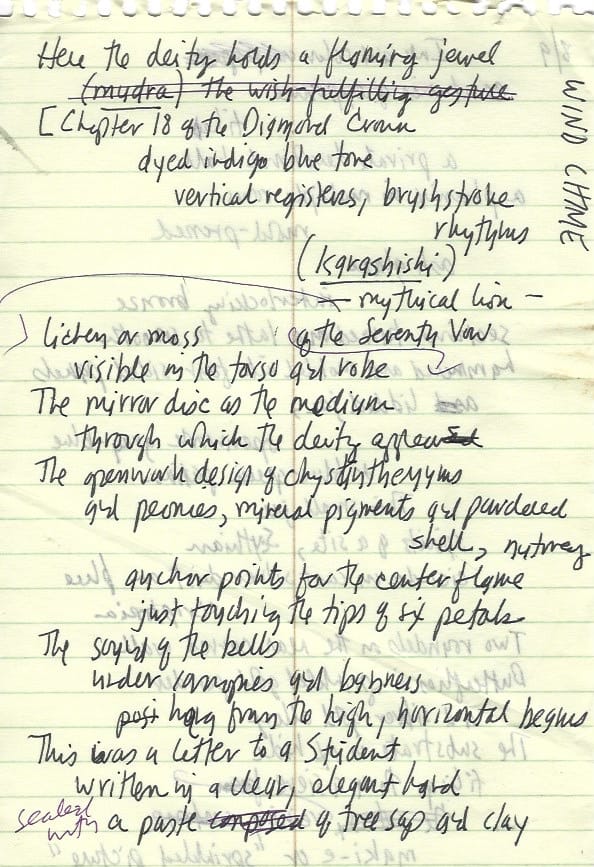 WIND CHIME
Here the deity holds a flaming jewel
(mudra) The wish-fulfilling gesture
[Chapter 18 of the Diamond Crown
dyed indigo blue tone
vertical registers, brushstroke
rhythms
(karashishi)
— mythical lion —
lichen or moss of the Seventh Vow
visible in the torso and robe
The mirror disc as the medium
through which the deity appears
The openwork design of chrysanthemums
and peonies, mineral pigments and powdered
shell, nutmeg
anchor points for the center flame
just touching the tips of six petals
The sound of the bells
under canopies and banners
hang from the high, horizontal beams
This was a letter to a Student
written in a clear, elegant hand
sealed with a paste composed of tree sap and clay